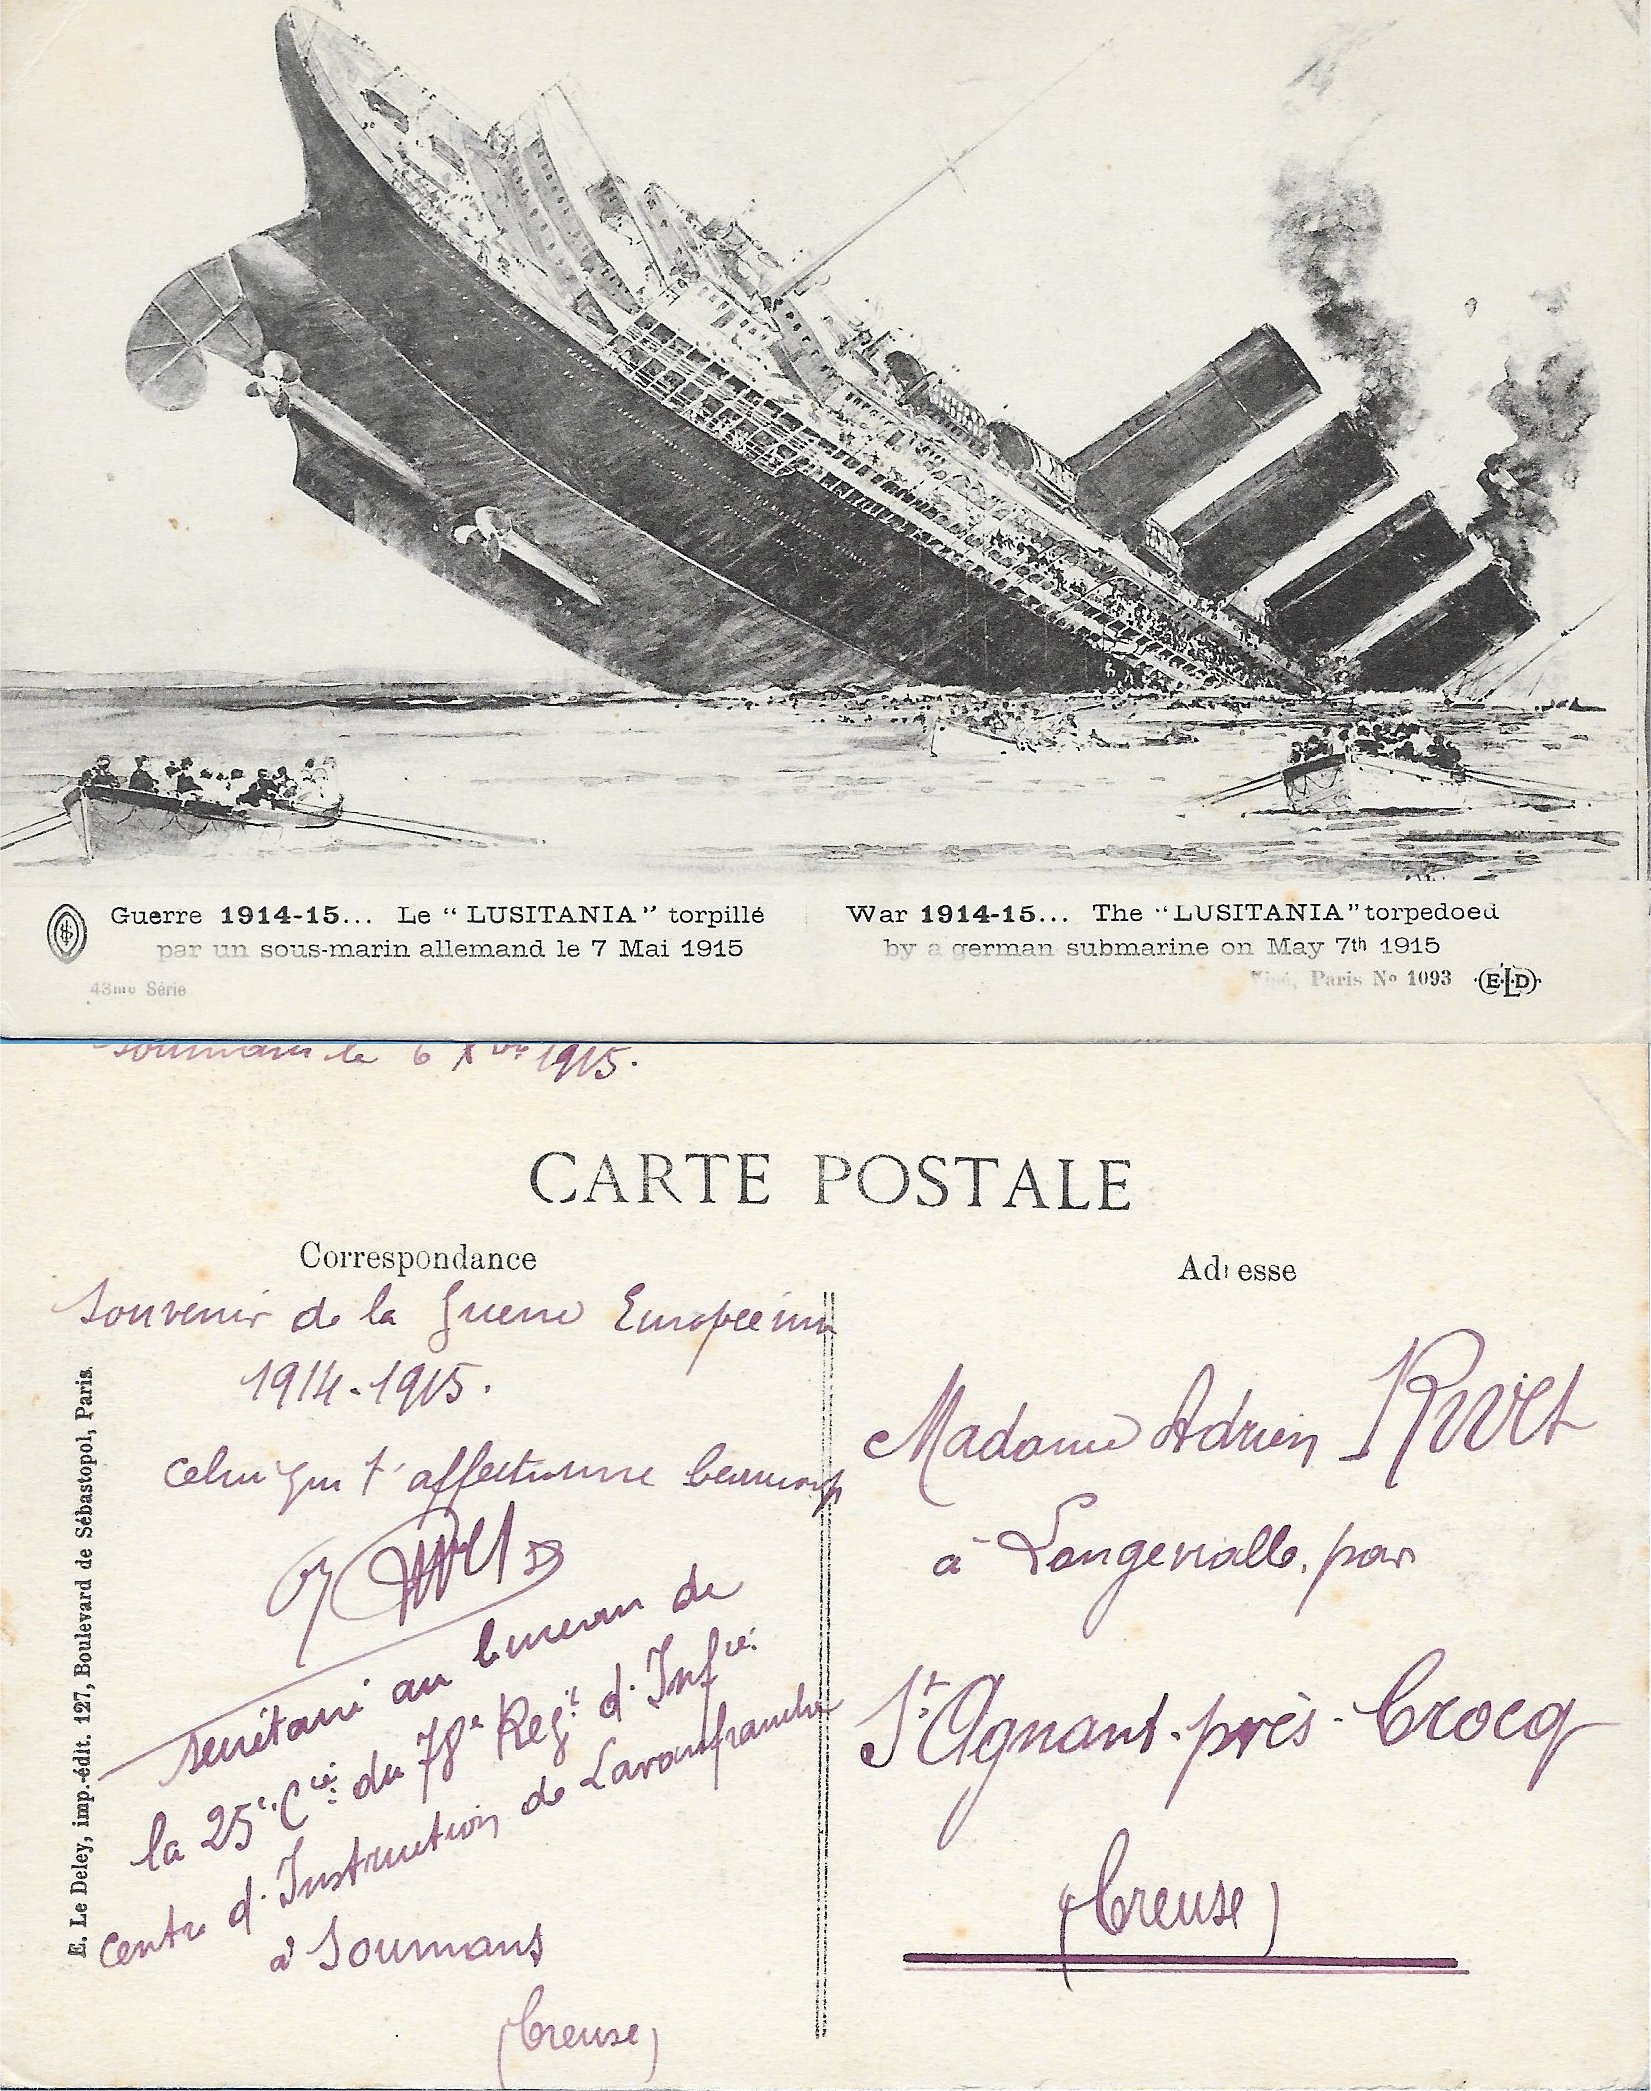 Guerre 1914-15... Le "LUSITANIA" torpillé
par un sous-marin allemand le 7 Mai 1915
War 1914-15... The "LUSITANIA" torpedoed
by a german submarine on May 7th 1915
48me Série
Visé, Paris No 1093 ELD
Soumans le 6 Xbre 1915.
CARTE POSTALE
Correspondance
Souvenir de la Guerre Européenne
1914-1915.
celui qui t'affectionne beaucoup
secrétaire au bureau de
la 25e Cie du 78e Régt d'Infie
centre d'Instruction de Lavaufranche
à Soumans
(Creuse)
E. Le Deley, imp.-édit. 127, Boulevard de Sébastopol, Paris.
Adresse
Madame Adrien Rivet
à Longevialle, par
St Agnant-près-Crocq
(Creuse)